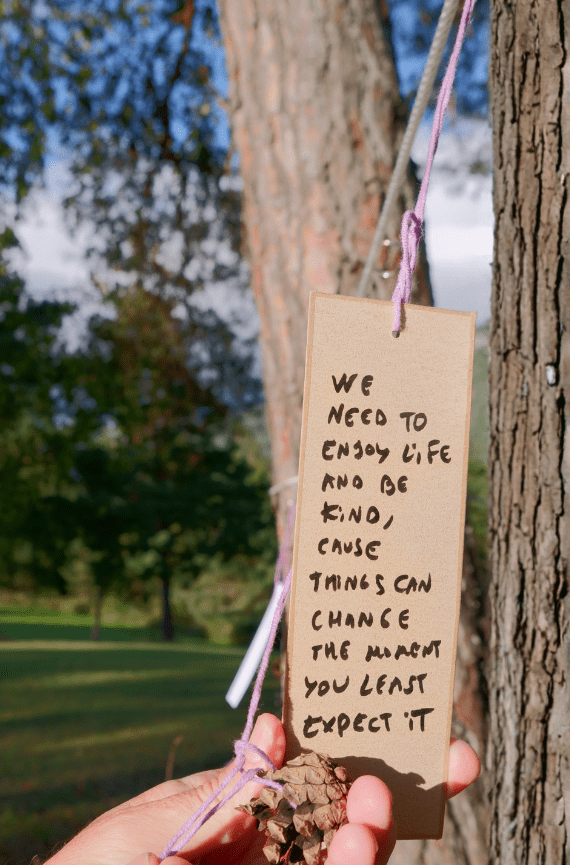 WE
NEED TO
ENJOY LiFE
AND BE
KiND,
CAUSE
THINGS CAN
CHANGE
THE MOMENT
YOU LEAST
EXPECT iT